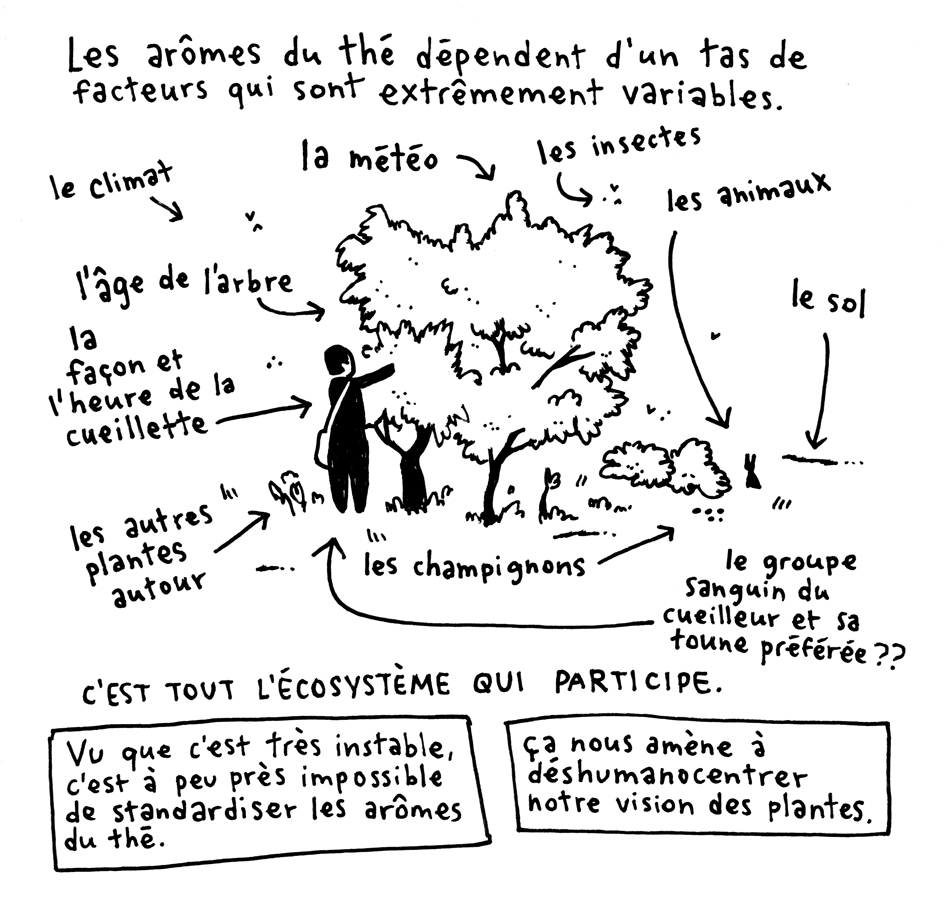 Les arômes du thé dépendent d'un tas de
facteurs qui sont extrêmement variables.
le climat
la météo
les insectes
les animaux
l'âge de l'arbre
le sol
la
façon et
l'heure de la
cueillette
les autres
plantes
autour
les champignons
le groupe
sanguin du
cueilleur et sa
toune préférée ??
C'EST TOUT L'ÉCOSYSTÈME QUI PARTICIPE.
Vu que c'est très instable,
c'est à peu près impossible
de standardiser les arômes
du thé.
ça nous amène à
déshumanocentrer
notre vision des plantes.